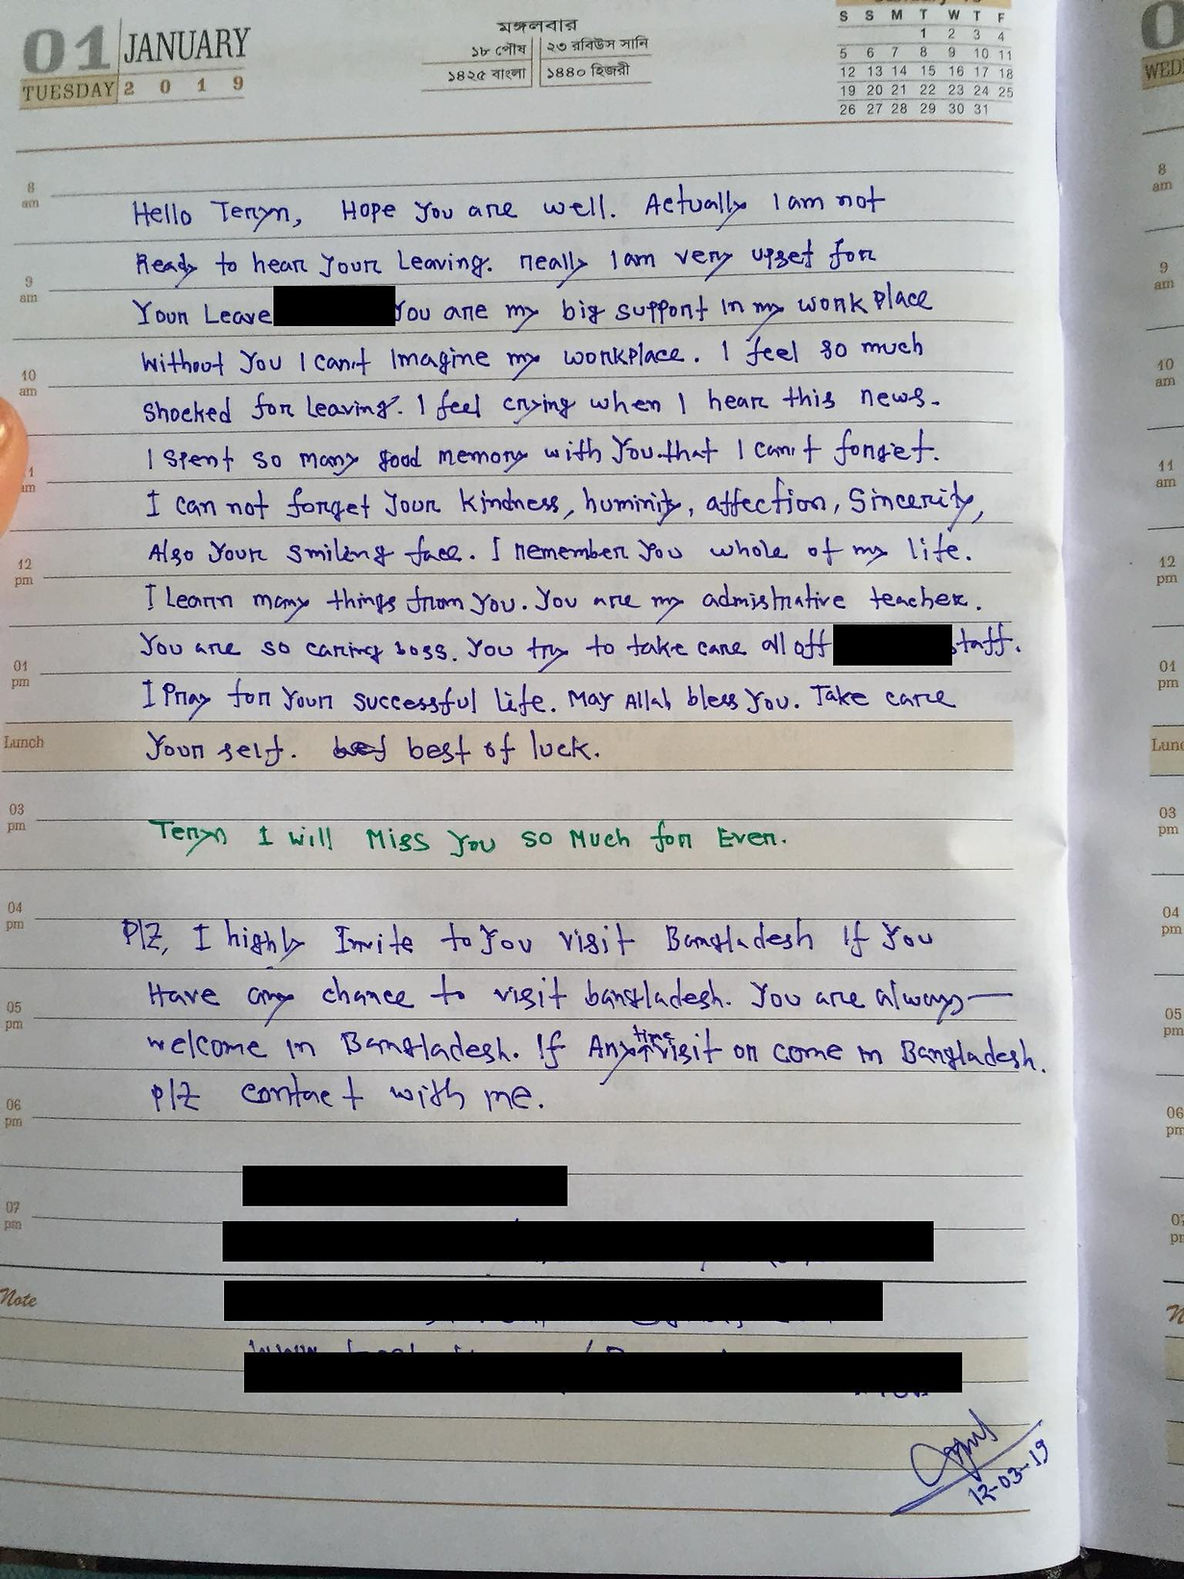 01 JANUARY
TUESDAY 2 0 1 9
মঙ্গলবার
১৮ পৌষ ২৩ রবিউস সানি
১৪২৫ বাংলা ১৪৪০ হিজরী
S S M T W T F
1 2 3 4
5 6 7 8 9 10 11
12 13 14 15 16 17 18
19 20 21 22 23 24 25
26 27 28 29 30 31
8 am
Hello Teryn, Hope you are well. Actually I am not
Ready to hear your Leaving. really I am very upset for
9 am
Your Leave You are my big support in my work place
without you I can't Imagine my workplace. I feel so much
10 am
shocked for leaving. I feel crying when I hear this news.
I spent so many good memory with you that I can't forget.
11 am
I can not forget your kindness, huminity, affection, Sincerity,
Also your smiling face. I remember you whole of my life.
12 pm
I Learn many things from you. You are my admistrative teacher.
You are so caring boss. You try to take care all off staff.
01 pm
I Pray for your successful life. May Allah bless you. Take care
Lunch
Your self. best of luck.
03 pm
Teryn I will Miss You so Much for Ever.
04 pm
Plz, I highly Invite to you visit Bangladesh If you
Have any chance to visit bangladesh. You are always
05 pm
welcome in Bangladesh. If Any time visit or come in Bangladesh.
plz contact with me.
06 pm
07 pm
Note
12-03-19
WED
8 am
9 am
10 am
11 am
12 pm
01 pm
Lunc
03 pm
04 pm
05 pm
06 pm
07